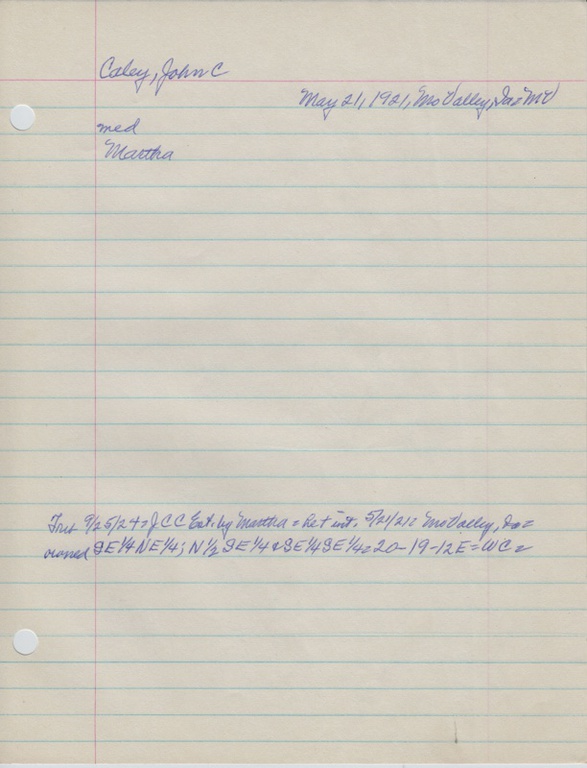 Caley, John C
May 21, 1921, Mo Valley, Ia = MV
med
Martha
9/25/24 = J C C Est. by Martha = Pet int. 5/21/21 = Mo Valley, Ia =
owned SE 1/4 NE 1/4; N 1/2 SE 1/4 & SE 1/4 SE 1/4 = 20-19-12E = WC =